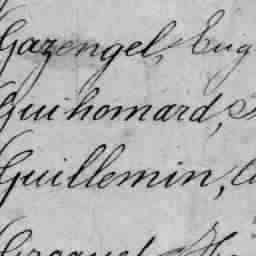 Gazengel, Eug
Guihomard,
Guillemin,